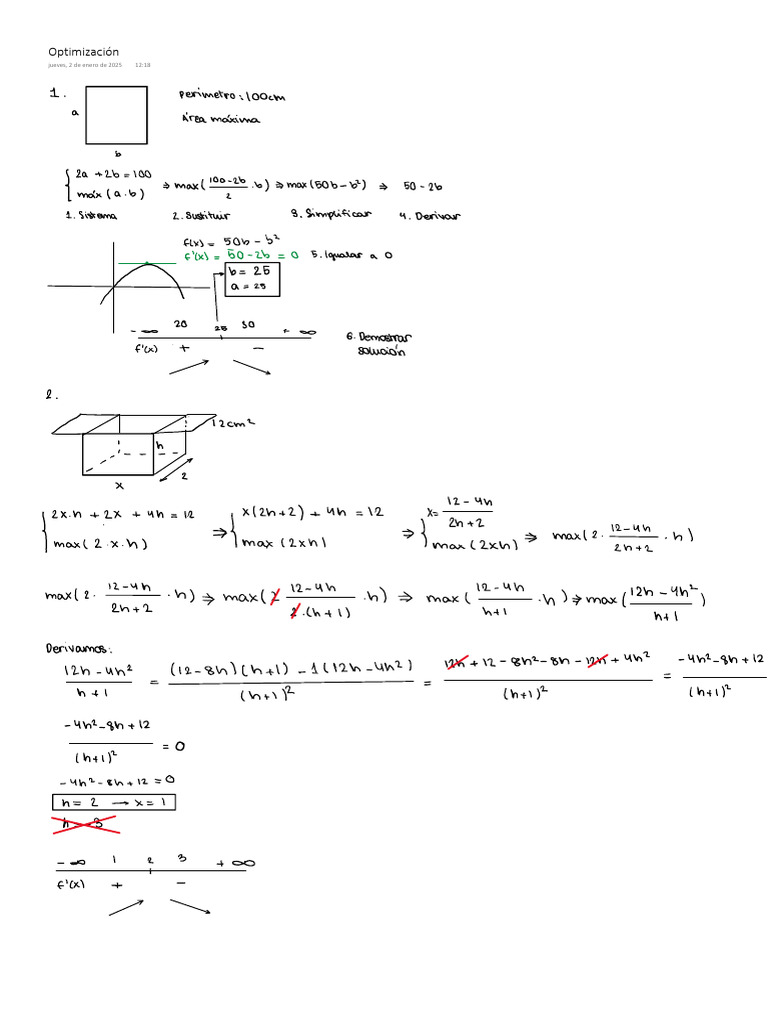 Optimización
jueves, 2 de enero de 2025 12:18
1.
a
b
perímetro: 100cm
Área máxima
{ 2a + 2b = 100
máx (a·b) ⇒ max( (100-2b)/2 · b) ⇒ max(50b - b²) ⇒ 50 - 2b
1. Sistema 2. Sustituir 3. Simplificar 4. Derivar
f(x) = 50b - b²
f'(x) = 50 - 2b = 0 5. Igualar a 0
b = 25
a = 25
-∞ 20 25 30 + ∞
f'(x) + -
6. Demostrar
solución
2.
12cm²
h
2
x
{ 2x·h + 2x + 4h = 12
max( 2·x·h) ⇒ { x(2h+2) + 4h = 12
max (2xh) ⇒ { x = (12 - 4h)/(2h+2)
max (2xh) ⇒ max( 2 · (12-4h)/(2h+2) · h )
max( 2 · (12-4h)/(2h+2) · h) ⇒ max( 2 (12-4h)/(2·(h+1)) ·h) ⇒ max( (12-4h)/(h+1) ·h) ⇒ max( (12h - 4h²)/(h+1) )
Derivamos:
(12h - 4h²)/(h+1) = ((12-8h)(h+1) - 1(12h-4h²))/(h+1)² = (12h + 12 - 8h² - 8h - 12h + 4h²)/(h+1)² = (-4h² - 8h + 12)/(h+1)²
(-4h² - 8h + 12)/(h+1)² = 0
-4h² - 8h + 12 = 0
h = 2 → x = 1
h 3
-∞ 1 2 3 + ∞
f'(x) + -